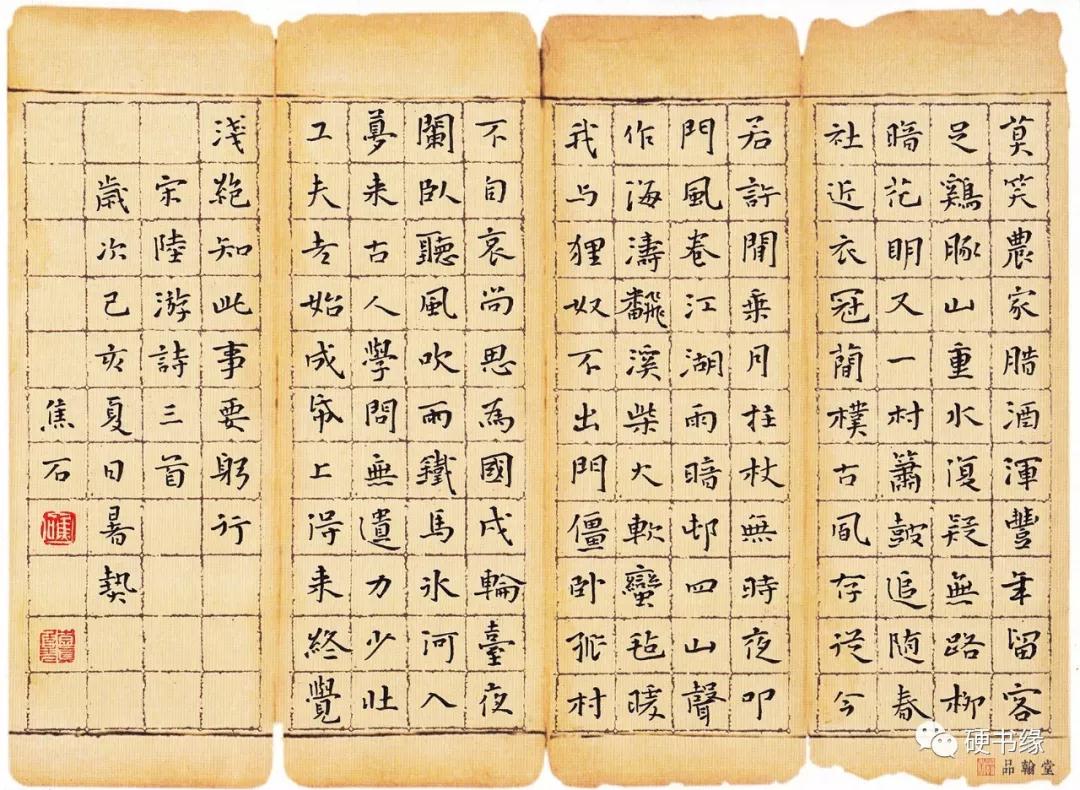 莫笑農家腊酒渾豐年留客
足鷄豚山重水復疑無路柳
暗花明又一村簫鼓追随春
社近衣冠簡樸古風存從今
若許閒乘月拄杖無時夜叩
門風卷江湖雨暗邨四山聲
作海濤飜溪柴火軟蠻毡暖
我与狸奴不出門僵卧孤村
不自哀尚思為國戍輪臺夜
闌臥聽風吹雨鐵馬氷河入
夢来古人學問無遺力少壯
工夫老始成帋上得来終覺
淺絶知此事要躬行
宋陸游詩三首
歲次己亥夏日暑熱
焦石
硬书缘
品翰堂